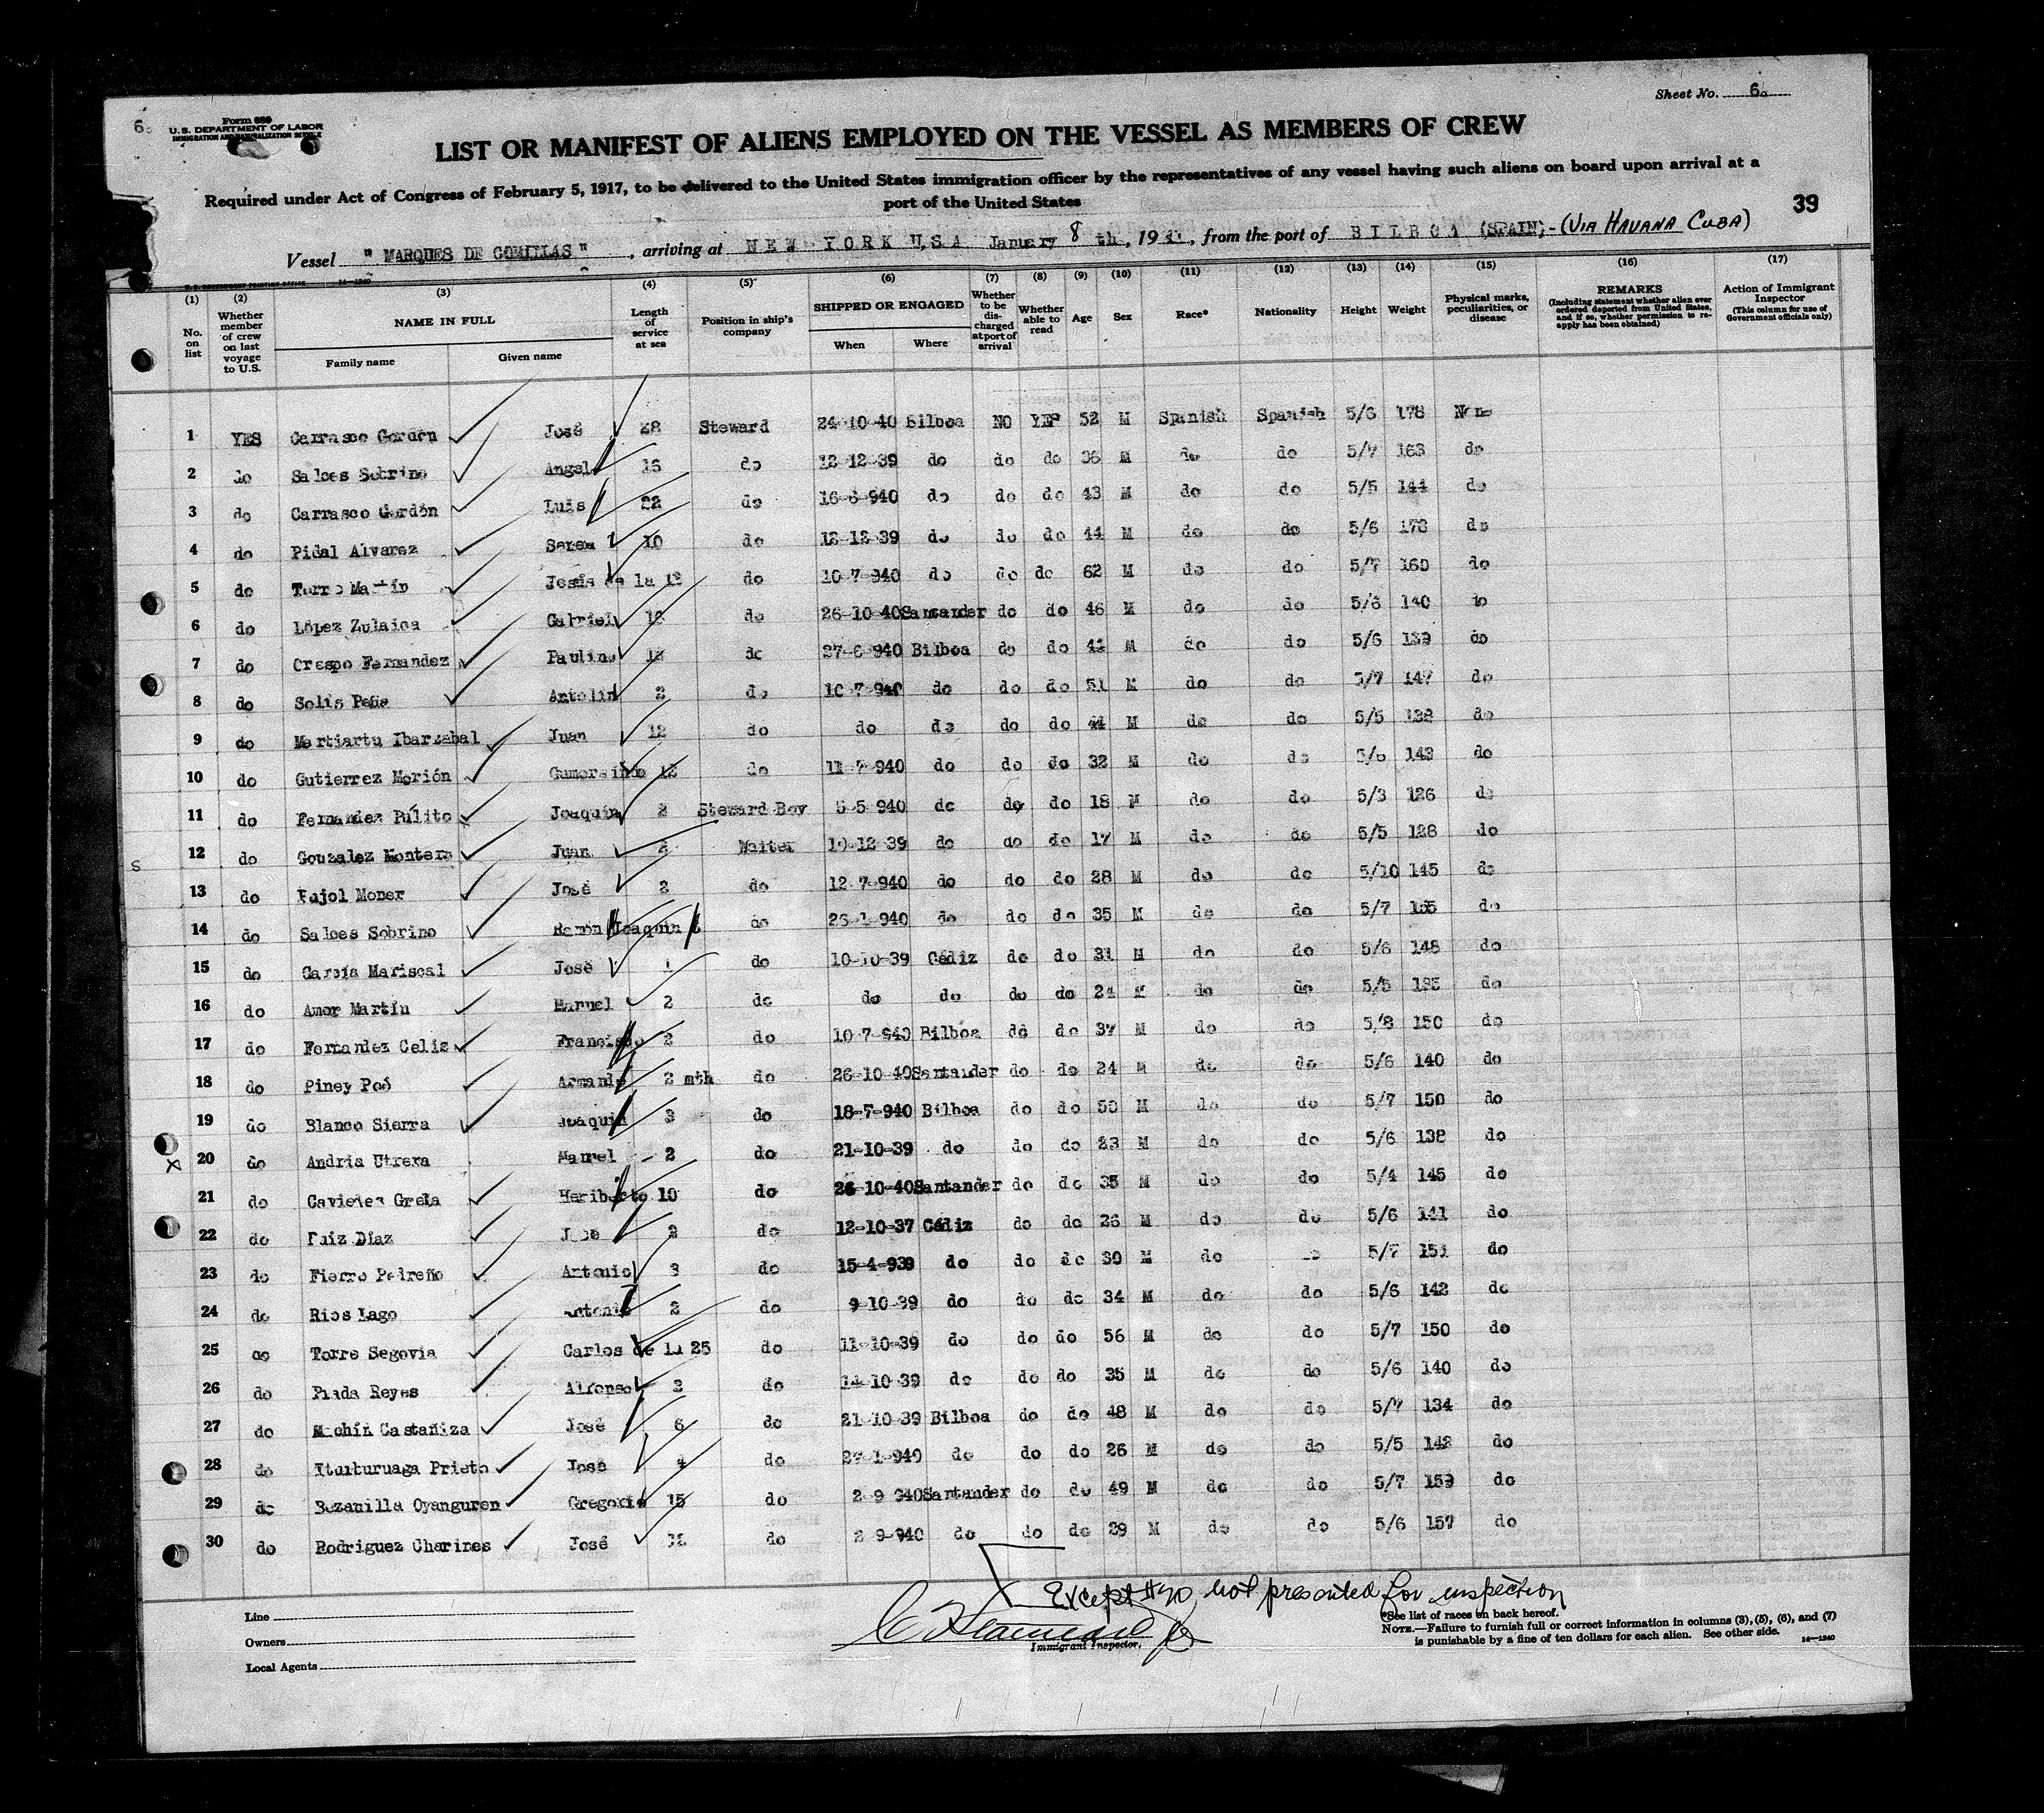 Sheet No. 6.
6.
Form 680
U.S. DEPARTMENT OF LABOR
IMMIGRATION AND NATURALIZATION SERVICE
LIST OR MANIFEST OF ALIENS EMPLOYED ON THE VESSEL AS MEMBERS OF CREW
Required under Act of Congress of February 5, 1917, to be delivered to the United States immigration officer by the representatives of any vessel having such aliens on board upon arrival at a
port of the United States
39
Vessel " MARQUES DE COMILLAS ", arriving at NEW YORK U.S.A. January 8 th, 1941, from the port of BILBOA (SPAIN)-(VIA HAVANA CUBA)
U. S. GOVERNMENT PRINTING OFFICE 14—1240
(1) (2) (3) (4) (5) (6) (7) (8) (9) (10) (11) (12) (13) (14) (15) (16) (17)
No. on list Whether member of crew on last voyage to U.S. NAME IN FULL Family name Given name Length of service at sea Position in ship's company SHIPPED OR ENGAGED When Where Whether to be discharged at port of arrival Whether able to read Age Sex Race* Nationality Height Weight Physical marks, peculiarities, or disease REMARKS (Including statement whether alien ever ordered deported from United States, and if so, whether permission to reapply has been obtained) Action of Immigrant Inspector (This column for use of Government officials only)
1 YES Carrasco Gordón José 28 Steward 24-10-40 Bilboa NO YES 52 M Spanish Spanish 5/6 178 None
2 do Salces Sobrino Angel 16 do 12-12-39 do do do 36 M do do 5/7 163 do
3 do Carrasco Gordón Luis 22 do 16-6-940 do do do 43 M do do 5/5 144 do
4 do Pidal Alvarez 10 do 12-12-39 do do do 44 M do do 5/6 178 do
5 do Torre Martín Jesús de la 12 do 10-7-940 do do do 62 M do do 5/7 160 do
6 do López Zulaica Gabriel 18 do 26-10-40 Santander do do 46 M do do 5/6 140 do
7 do Crespo Fernandez Paulino 12 do 27-6-940 Bilboa do do 42 M do do 5/6 139 do
8 do Solis Peña Antolin 2 do 10-7-940 do do do 51 M do do 5/7 147 do
9 do Martiartu Ibarzabal Juan 12 do do do do do 44 M do do 5/5 138 do
10 do Gutierrez Morión Gumersindo 12 do 11-7-940 do do do 32 M do do 5/6 143 do
11 do Fernandez Púlito Joaquín 2 Steward Boy 5-5-940 do do do 18 M do do 5/3 126 do
12 do Gouzalez Montero Juan 2 Waiter 10-12-39 do do do 17 M do do 5/5 128 do
S
13 do Pujol Moner José 2 do 12-7-940 do do do 28 M do do 5/10 145 do
14 do Salces Sobrino Ramón Joaquin do 26-1-940 do do do 35 M do do 5/7 155 do
15 do García Mariscal José 1 do 10-10-39 Cádiz do do 31 M do do 5/6 148 do
16 do Amor Martín Manuel 2 do do do do do 24 M do do 5/5 135 do
17 do Fernandez Celis Francisco 2 do 10-7-940 Bilboa do do 37 M do do 5/8 150 do
18 do Piney Poó Armando 2 mth do 26-10-40 Santander do do 24 M do do 5/6 140 do
19 do Blanco Sierra Joaquin 3 do 18-7-940 Bilboa do do 50 M do do 5/7 150 do
X 20 do Andria Utrera Manuel 2 do 21-10-39 do do do 23 M do do 5/6 138 do
21 do Cavieles Grela Heriberto 10 do 26-10-40 Santander do do 35 M do do 5/4 145 do
22 do Ruiz Diaz José 2 do 12-10-37 Cádiz do do 26 M do do 5/6 141 do
23 do Fierro Pedreño Antonio 3 do 15-4-939 do do do 30 M do do 5/7 151 do
24 do Rios Lago Antonio 2 do 9-10-39 do do do 34 M do do 5/6 142 do
25 do Torre Segovia Carlos de la 25 do 11-10-39 do do do 56 M do do 5/7 150 do
26 do Prada Reyes Alfonso 3 do 14-10-39 do do do 35 M do do 5/6 140 do
27 do Machín Castañiza José 6 do 21-10-39 Bilboa do do 48 M do do 5/7 134 do
28 do Iturburuaga Prieto José 4 do 27-1-940 do do do 26 M do do 5/5 142 do
29 do Bezanilla Oyanguren Gregorio 15 do 2-9-940 Santander do do 49 M do do 5/7 159 do
30 do Rodriguez Charines José 12 do 2-9-940 do do do 29 M do do 5/6 157 do
Except #20, not presented for inspection
Line
Owners
Local Agents
Immigrant Inspector.
*See list of races on back hereof.
NOTE.—Failure to furnish full or correct information in columns (3), (5), (6), and (7)
is punishable by a fine of ten dollars for each alien. See other side. 14—1240